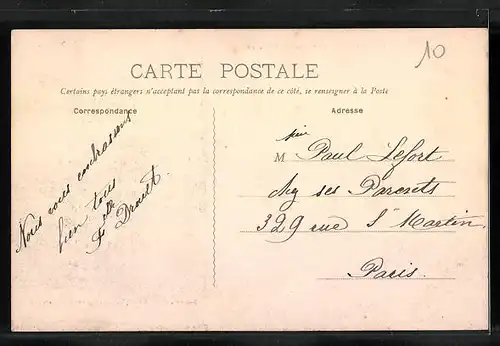 10
CARTE POSTALE
Certains pays étrangers n'acceptant pas la correspondance de ce côté, se renseigner à la Poste
Correspondance
Nous vous embrassons
bien tous
Drault
Adresse
M Paul Lefort
chez ses Parents
329 rue St Martin
Paris.